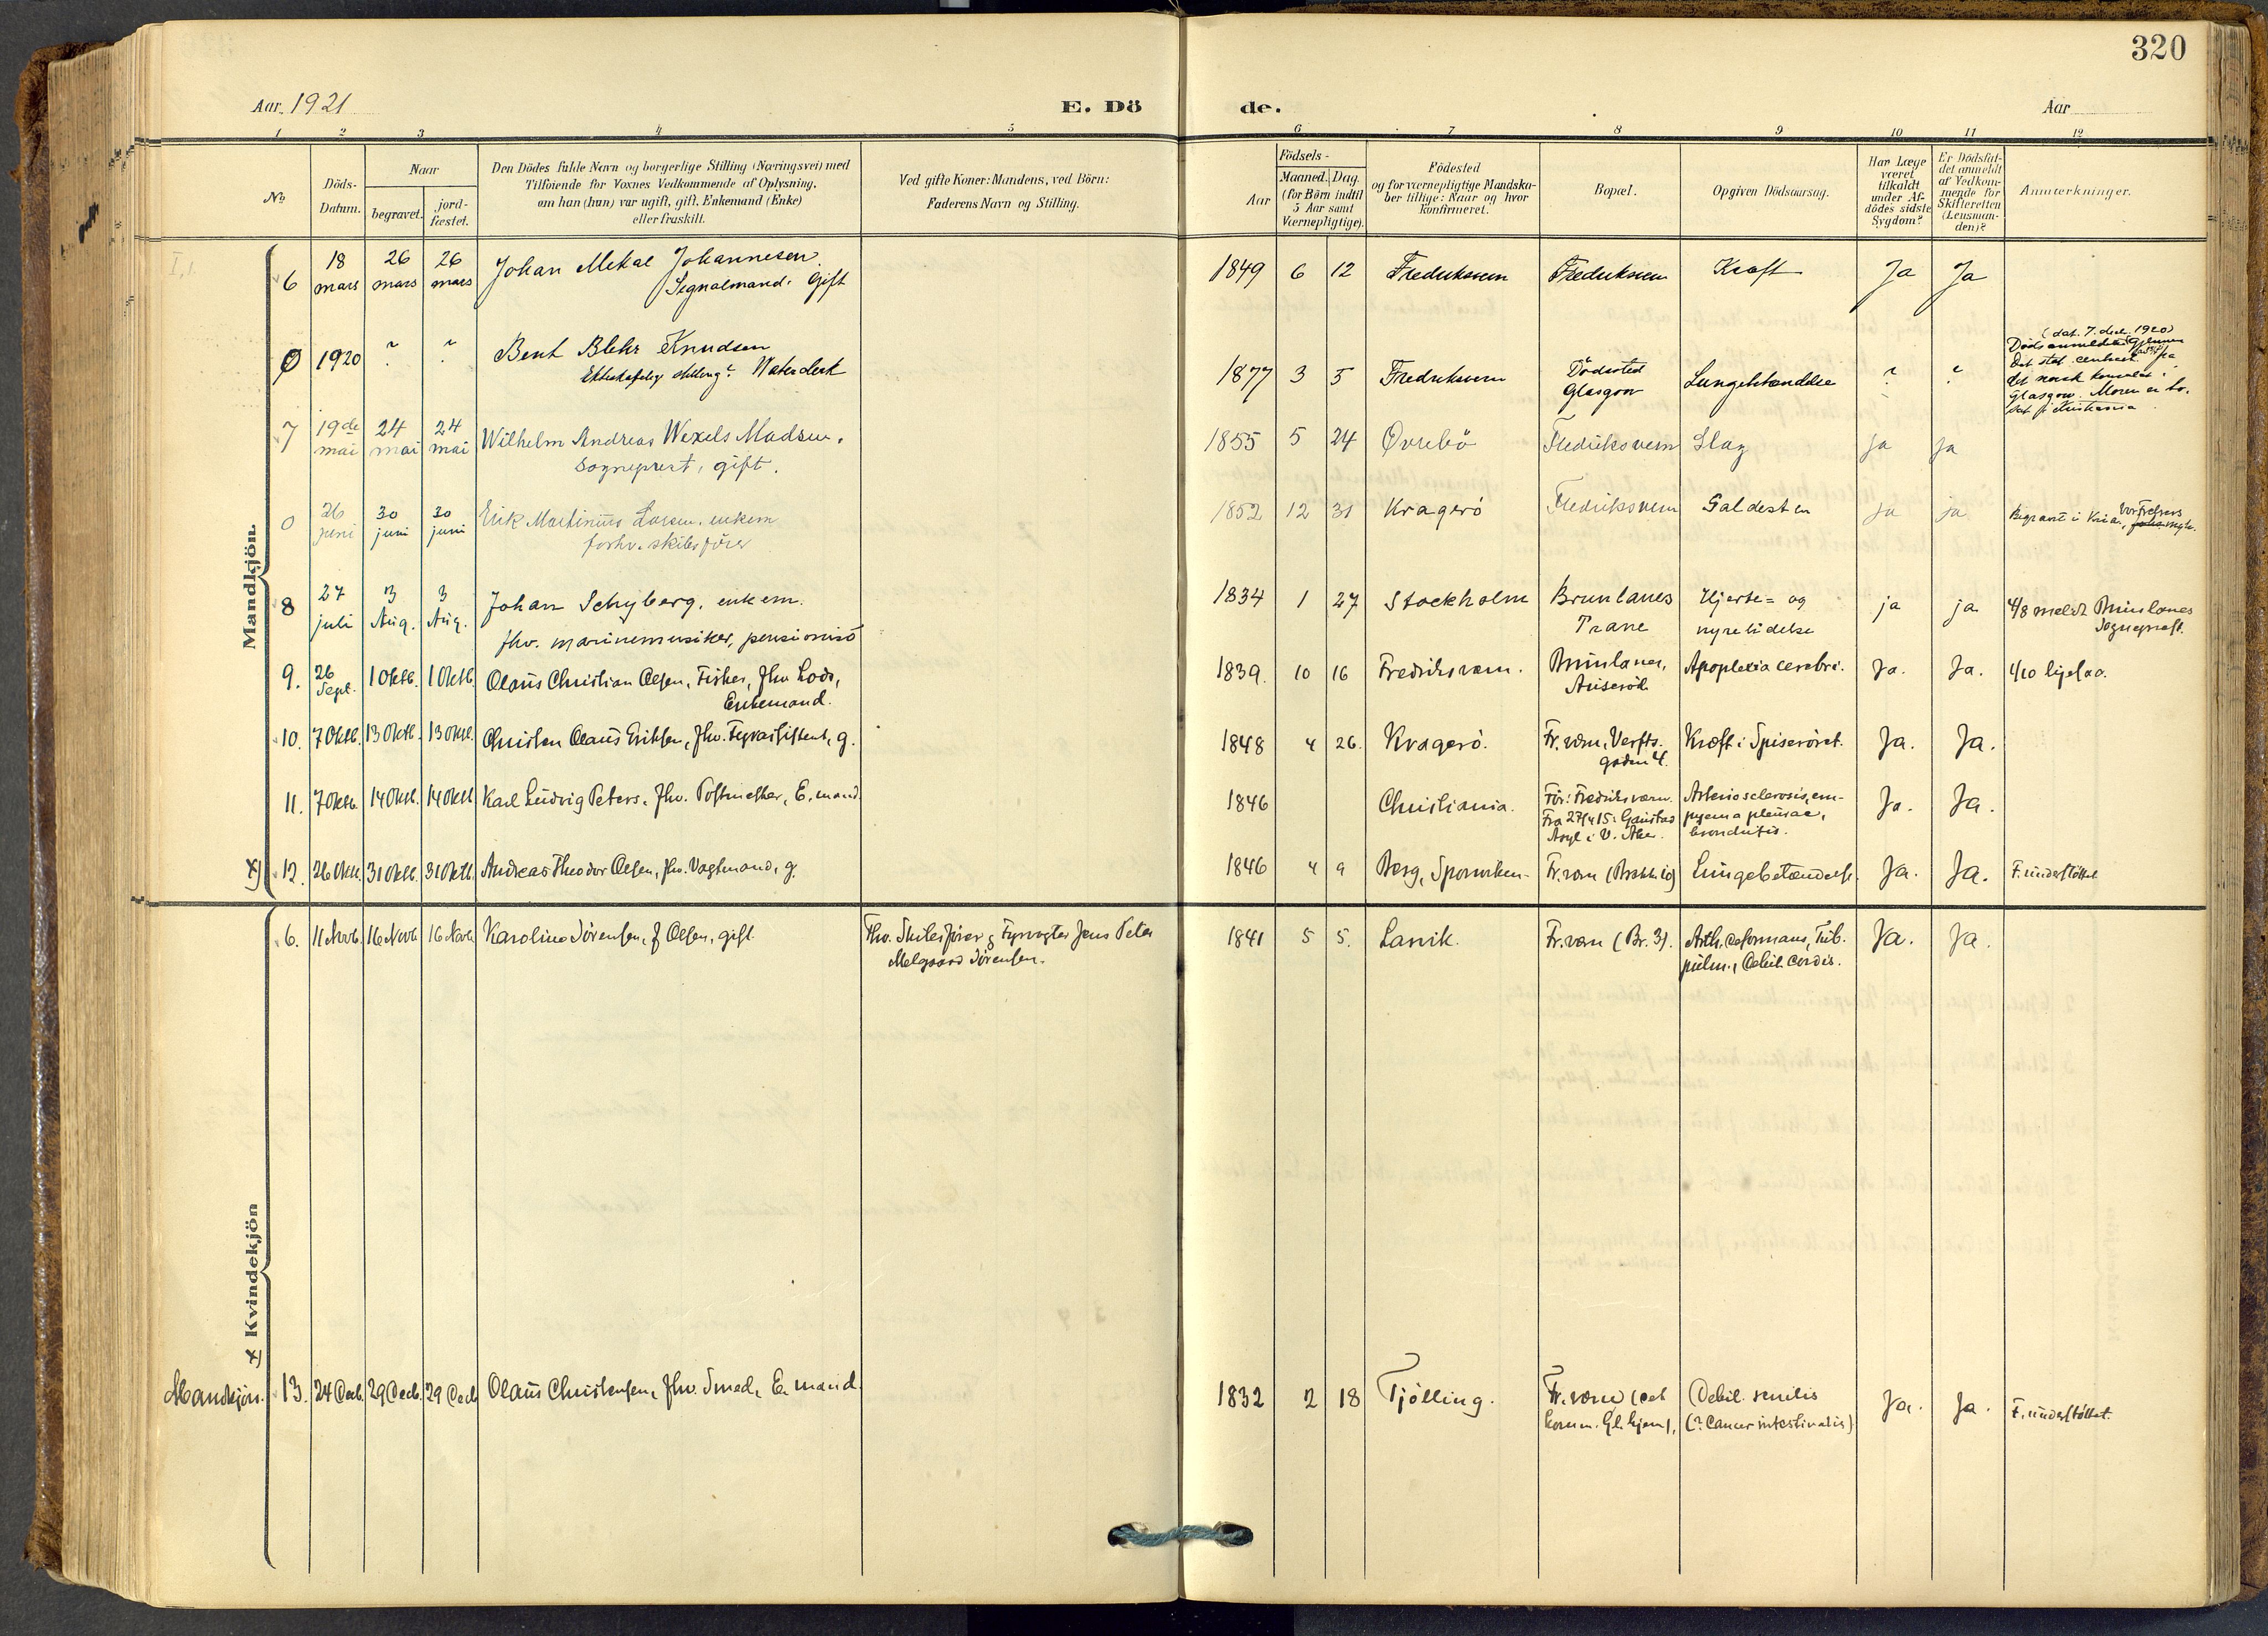 320
Aar 1921
E. Dö
de.
Aar
1 2 3 4 5 6 7 8 9 10 11 12
No
Döds-
Datum.
Naar
begravet.
jord-
fæstet.
Den Dödes fulde Navn og borgerlige Stilling (Næringsvei) med
Tilföiende for Voxnes Vedkommende af Oplysning,
om han (hun) var ugift, gift, Enkemand (Enke)
eller fraskilt.
Ved gifte Koner: Mandens, ved Börn:
Faderens Navn og Stilling.
Aar
Födsels-
Maaned. Dag.
(for Börn indtil
5 Aar samt
Værnepligtige).
Födested
og for værnepligtige Mandska-
ber tillige: Naar og hvor
konfirmeret.
Bopæl.
Opgiven Dödsaarsag.
Har Læge
været
tilkaldt
under Af-
dödes sidste
Sygdom?
Er Dödsfal-
det anmeldt
af Vedkom-
mende for
Skifteretten
(Lensman-
den)?
Anmærkninger.
Mandkjön.
6 18 mars 26 mars 26 mars Johan Mekal Johannesen.
Signalmand. Gift
1849 6 12 Fredriksvern Fredriksvern Kræft Ja Ja
0 1920 ? ? Bent Blehr Knudsen
Ekteskapelig stilling? Waterclerk
1877 3 5 Fredriksvern Dödssted
Glasgow
Lungebetændelse ? ?
(dat. 7. des. 1920)
Dödsanmeldelse gjennem
Det stat. centralb. fra
det norsk konsulat i
Glasgow. Moren er bo-
sat i Kristiania.
7 19de mai 24 mai 24 mai Wilhelm Andreas Wexels Madsen,
Sogneprest, gift.
1855 5 24 Øvrebö Fredriksvern Slag ja ja
0 26 juni 30 juni 30 juni Erik Martinius Larsen, enkem
forhv. skibsförer
1852 12 31 Kragerö Fredriksvern Galdesten ja ja Begravet i Kr.ia, Vor Frelsers
8 27 juli 3 Aug. 3 Aug. Johan Schyberg, enkem.
fhv. marinemusiker, pensionist
1834 1 27 Stockholm Brunlanes
Prane
Hjerte= og
nyrelidelse
ja ja 4/8 meldt Brunlanes
Sogneprest.
9. 26 Sept. 1 Oktb. 1 Oktb. Olaus Christian Olsen, Fisker, fhv. Lods,
Enkemand.
1839. 10 16 Fredriksværn. Brunlanes,
Apoplexia cerebri. Ja. Ja. 1/10
10. 7 Oktb. 13 Oktb. 13 Oktb. Christen Olaus Eriksen, fhv. Fyrassistent, g.
1848 4 26. Kragerö. Fr.værn, Verfts-
gaden 4.
Kræft i Spiseröret. Ja. Ja.
11. 7 Oktb. 14 Oktb. 14 Oktb. Karl Ludvig Peters, fhv. Postmester, E.mand.
1846 Christiania. För: Fredriksværn.
Fra 27/4 15: Gaustad
Asyl i V. Aker.
Arteriosclerosis, em-
pyema pleurae,
bronchitis.
Ja. Ja.
x) 12. 26 Oktb. 31 Oktb. 31 Oktb. Andreas Theodor Olsen, fhv. Vagtmand, g.
1846 4 9 Berg, Fr.værn Lungebetændelse. Ja. Ja. F.understöttet
x) Kvindekjön
6. 11 Novb. 16 Novb. 16 Novb. Karoline Sörensen, f. Olsen, gift.
Fhv. Skibsförer & Fyrvogter Jens Peter
Melgaard Sörensen.
1841 5 5. Larvik. Fr.værn (Br. 3). Arth. deformans, Tub.
pulm., Debil. cordis.
Ja. Ja.
Mandkjön. 13. 24 Decb. 29 Decb. 29 Decb Olaus Christensen, fhv. Smed, E.mand.
1832 2 18 Tjölling. Fr.værn (det
komm. Gl.hjem),
Debil. senilis
(? Cancer intestinalis)
Ja. Ja. F.understöttet.